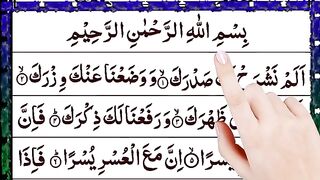 بِسْمِ اللهِ الرَّحْمٰنِ الرَّحِيْمِ
اَلَمْ نَشْرَحْ صَدْرَكَ ۝١ وَوَضَعْنَا عَنْكَ وِزْرَكَ ۝٢
ظَهْرَكَ ۝٣ وَرَفَعْنَا لَكَ ذِكْرَكَ ۝٤ فَاِنَّ
يُسْرًا ۝٥ اِنَّ مَعَ الْعُسْرِ يُسْرًا ۝٦ فَاِذَا